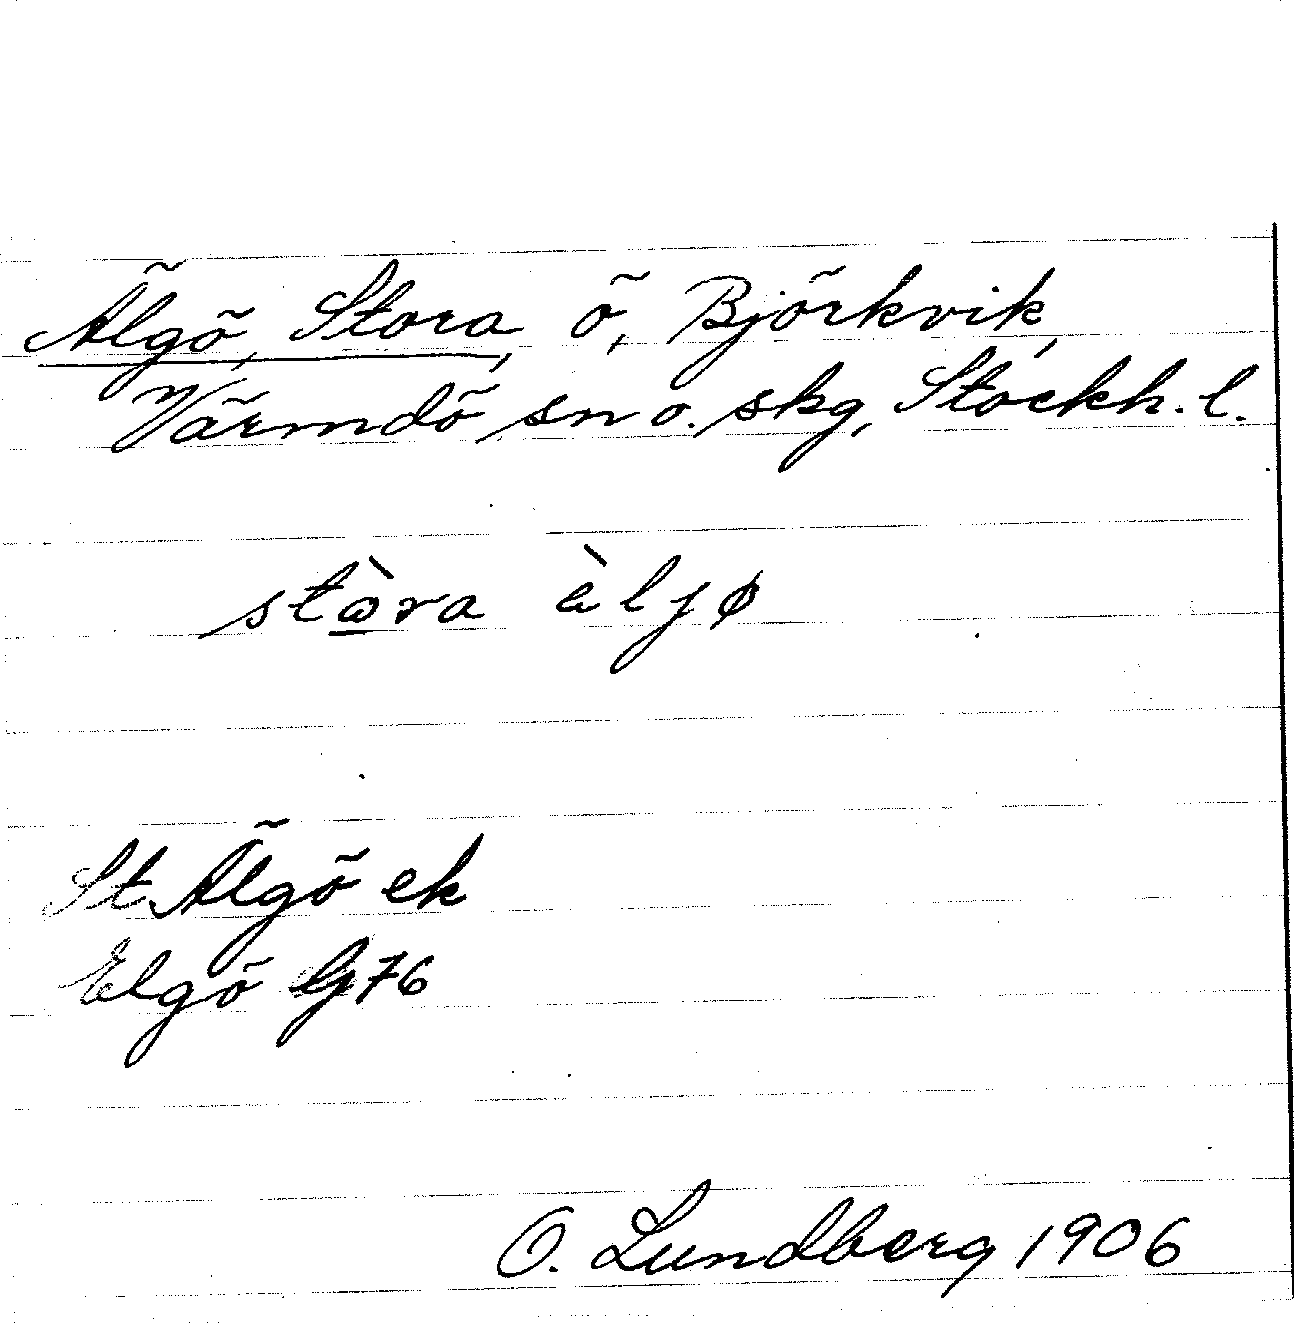 Älgö, Stora, ö, Björkvik,
Värmdö sn o. skg, Stockh. l.
stòra èljø
St Älgö ek
Elgö G76
O. Lundberg 1906